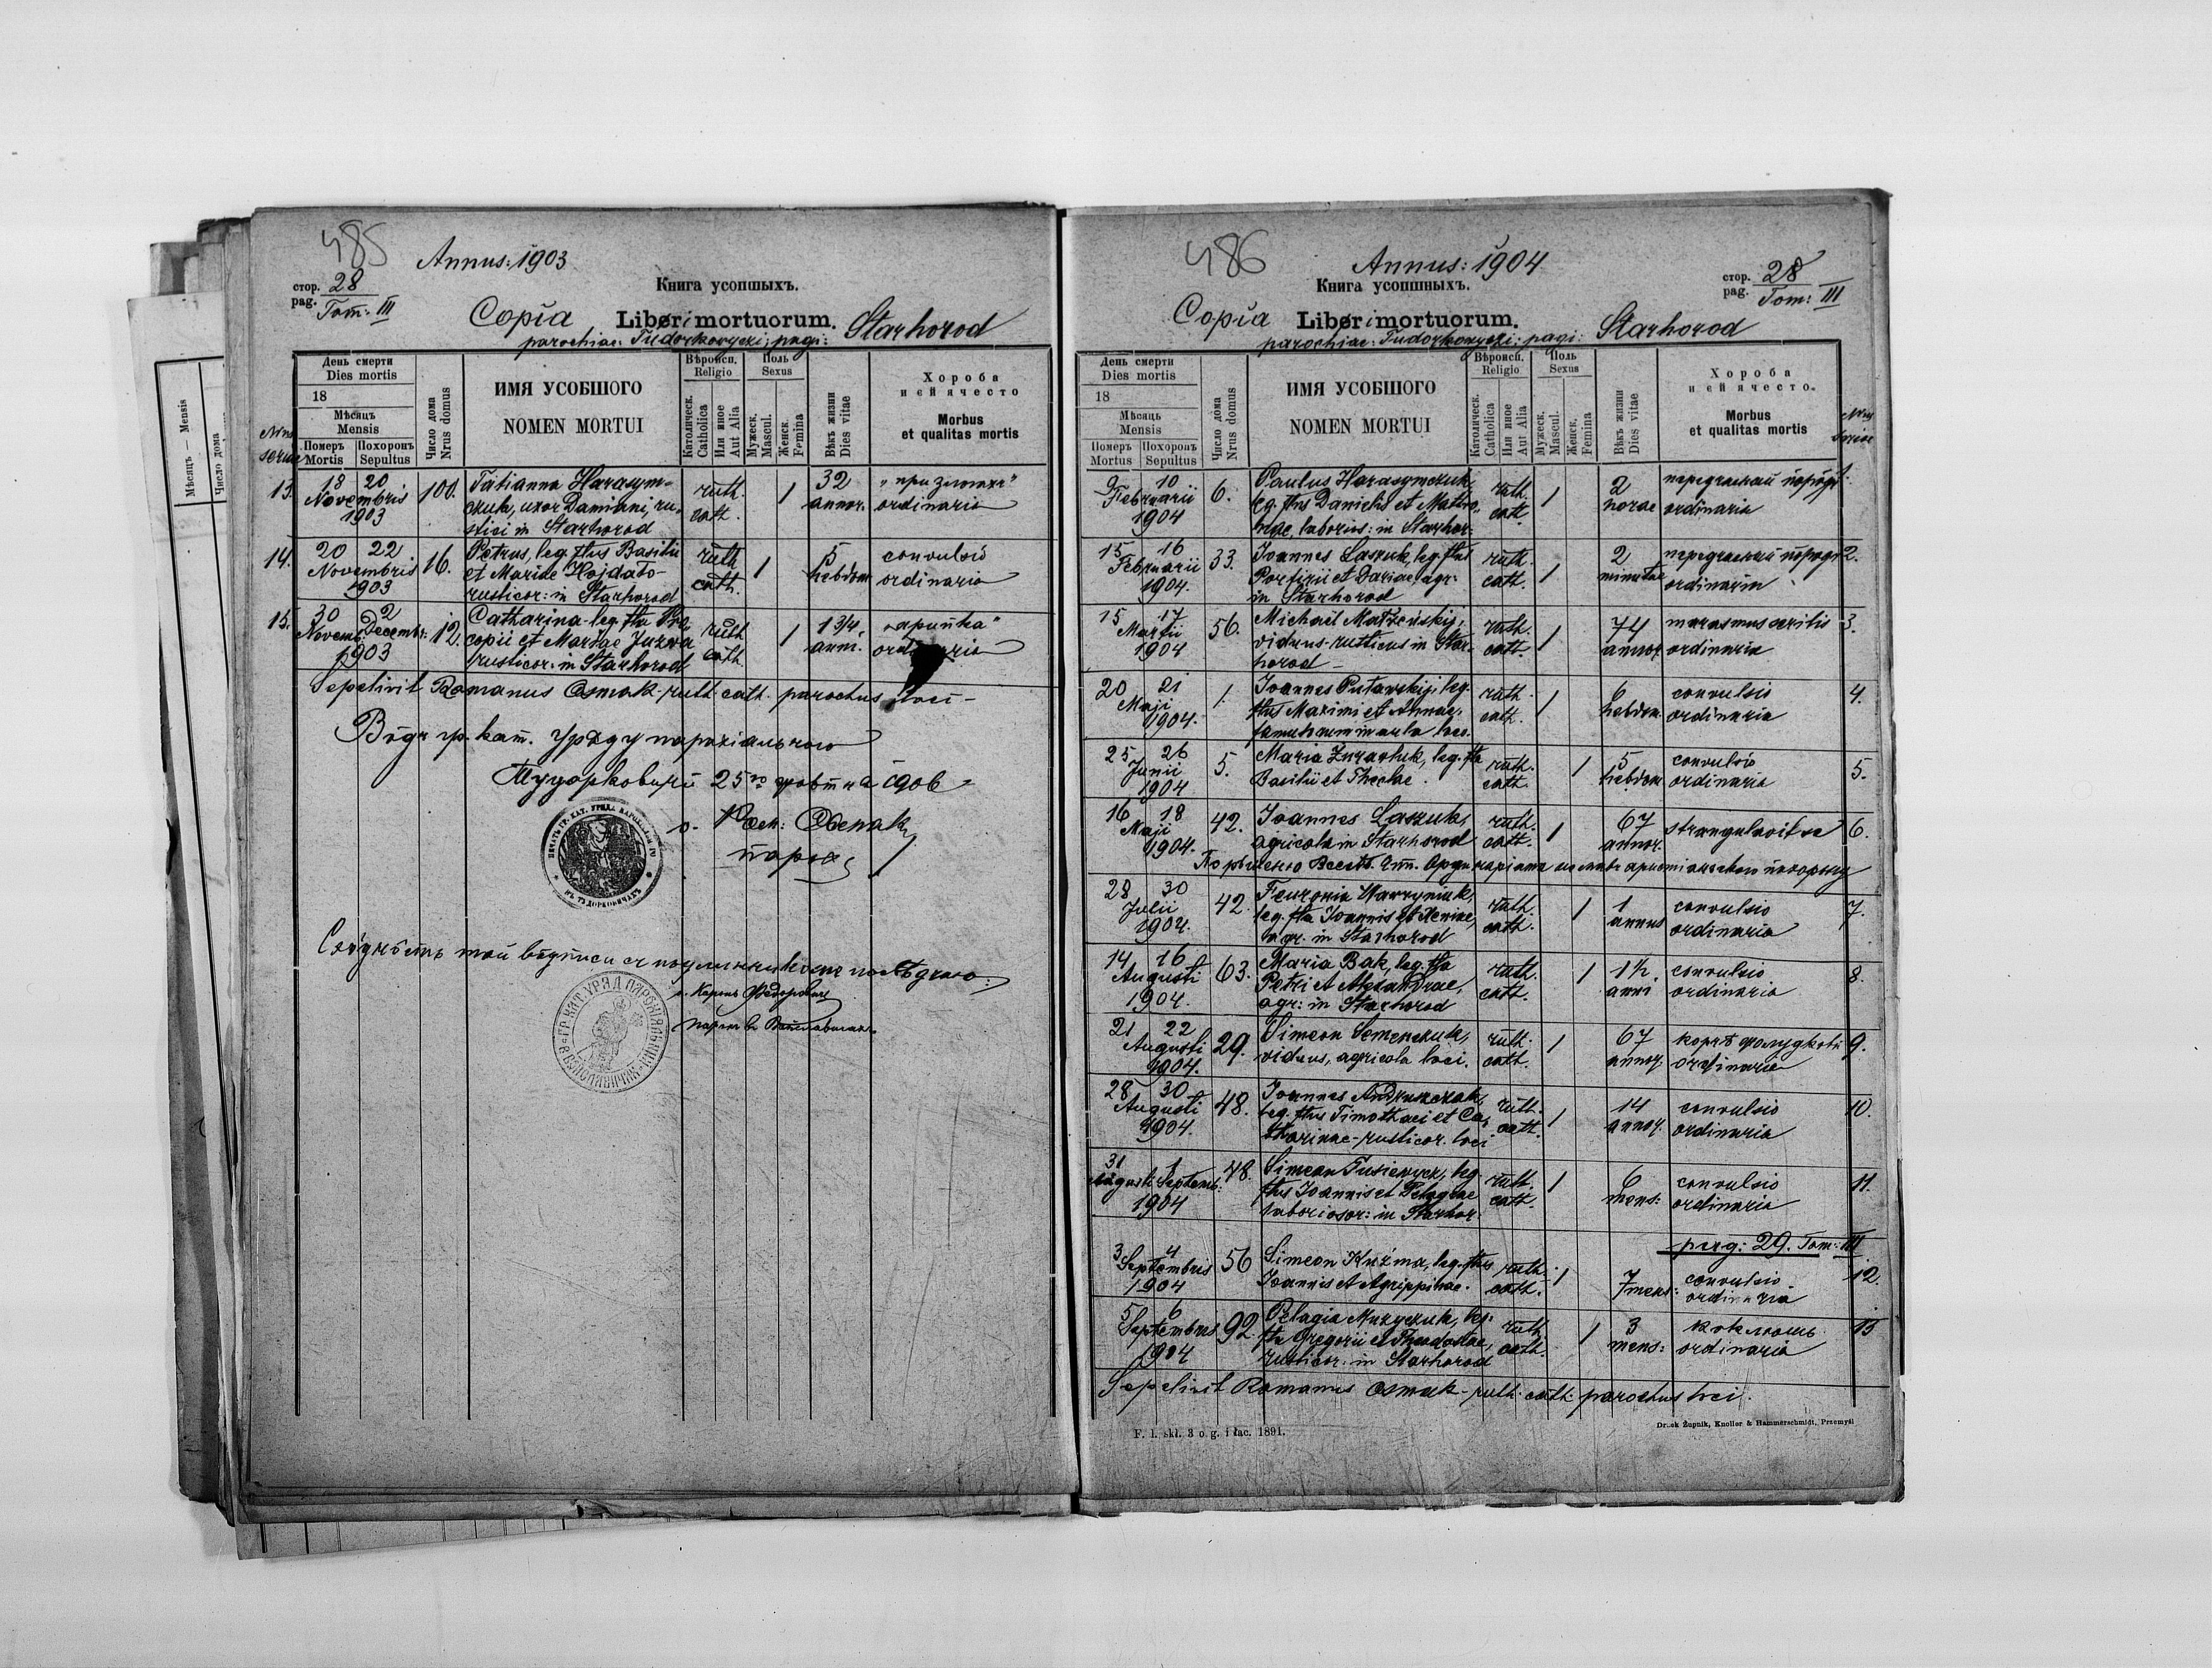 485
Annus: 1903
стор. 28
pag. Tom: III
Книга усопшыхъ.
Copia Liberi mortuorum. Starhorod
parochiae: Tudorkovycki; pagi:
День смерти
Dies mortis
18
Мѣсяць
Mensis
Померъ Mortis
Похоронъ Sepultus
Число дома
Nrus domus
ИМЯ УСОБШОГО
NOMEN MORTUI
Вѣроисп.
Religio
Католическ.
Catholica
Или иное
Aut Alia
Поль
Sexus
Мужеск.
Mascul.
Женск.
Femina
Вѣкъ жизни
Dies vitae
Хороба
и ей ячесто
Morbus
et qualitas mortis
13. 18 20 Novembris 1903 100. Tatianna Harasym-
czuk, uxor Damiani, ru-
stici in Starhorod ruth. cath. 1 32 annor. ordinaria
14. 20 22 Novembris 1903 16. Petrus, leg. flus Basilii
et Mariae Hojdato-
rusticor: in Starhorod ruth. cath. 1 5 hebdom convulsio ordinaria
15. 30 Novemb. 2 Decembr: 1903 12. Catharina leg. fla Pro
copii et Martae Juzwa
rusticor: in Starhorod ruth. cath. 1 1 3/4 anni. ordinaria
Sepelivit Romanus Osmak ruth. cath. parochus loci
Вôдъ гр. кат. Уряду парохіального
Тудорковичѣ 25го 1906
о. Ром: Осмак
парох
ПЕЧАТЬ ГР. КАТ. УРЯДА ПАРОХІАЛЬНОГО ВЪ ТУДОРКОВИЧАХЪ
486
Annus: 1904
стор. 28
pag. Tom: III
Книга усопшныхъ.
Copia Liberi mortuorum. Starhorod
parochiae: Tudorkovycki; pagi:
День смерти
Dies mortis
18
Мѣсяць
Mensis
Померъ Mortus
Похоронъ Sepultus
Число дома
Nrus domus
ИМЯ УСОБШОГО
NOMEN MORTUI
Вѣроисп.
Religio
Католическ.
Catholica
Или иное
Aut Alia
Поль
Sexus
Мужеск.
Mascul.
Женск.
Femina
Вѣкъ жизни
Dies vitae
Хороба
и ей ячесто.
Morbus
et qualitas mortis
9 10 Februarii 1904 6. Paulus Harasymczuk,
leg. flus Danielis et Matro-
nae, laborios: in Starhor: ruth. cath. 1 2 horae ordinaria 1.
15 16 Februarii 1904. 33. Joannes Laszuk, leg. flus
Porfirii et Dariae, agr:
in Starhorod ruth. cath. 1 2 minutae ordinaria 2.
15 17 Martii 1904 56. Michaël
viduus rusticus in Star-
horod ruth. cath. 1 74 annor. marasmus senilis ordinaria 3.
20 21 Maji 1904. 1. Joannes Putawskij, leg.
flus Maximi et Annae,
in aula loci. ruth. cath. 1 6 hebdom. convulsio ordinaria 4.
25 26 Junii 1904 5. Maria leg. fla
Basilii et Theclae. ruth. cath. 1 5 hebdom convulsio ordinaria 5.
16 18 Maji 1904. 42. Joannes Laszuk,
agricola in Starhorod ruth. cath. 1 67 annor. strangulavit se 6.
28 30 Julii 1904. 42. Feuronia Hawryniuk,
leg. fla Joannis et Xeniae,
agr. in Starhorod ruth. cath. 1 1 annus convulsio ordinaria 7.
14 16 Augusti 1904. 63. Maria Bak, leg. fla
Petri et Alexandrae,
agr: in Starhorod ruth. cath. 1 1 1/2 anni convulsio ordinaria 8.
21 22 Augusti 1904. 29. Simeon Semenczuk,
viduus, agricola loci. ruth. cath. 1 67 annor. ordinaria 9.
28 30 Augusti 1904. 48. Joannes
leg. flus Timothaei et Ca-
tharinae rusticor. loci ruth. cath. 1 14 annor. convulsio ordinaria 10.
31 Augusti 1 Septemb: 1904 48. Simeon Fusiewycz, leg.
flus Joannis et Pelagiae
laboriosor: in Starhor. ruth. cath. 1 6 mens: convulsio ordinaria 11.
pag: 29. Tom: III
3 4 Septembris 1904 56 Simeon Kuźma, leg. flus
Joannis et Agrippinae. ruth. cath. 1 7 mens: convulsio ordinaria 12.
5 6 Septembris 1904 92. Pelagia Muzyczuk, leg.
fla Gregorii et Theodosiae,
rusticor. in Starhorod ruth. cath. 1 3 mens: коклюшъ ordinaria 13
Sepelivit Romanus Osmak ruth. cath. parochus loci.
F. 1. skł. 3 o g. i łac. 1891.
Druk Żupnik, Knoller & Hammerschmidt, Przemyśl